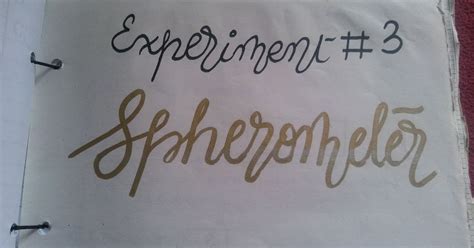 Experiment # 3
Spherometer